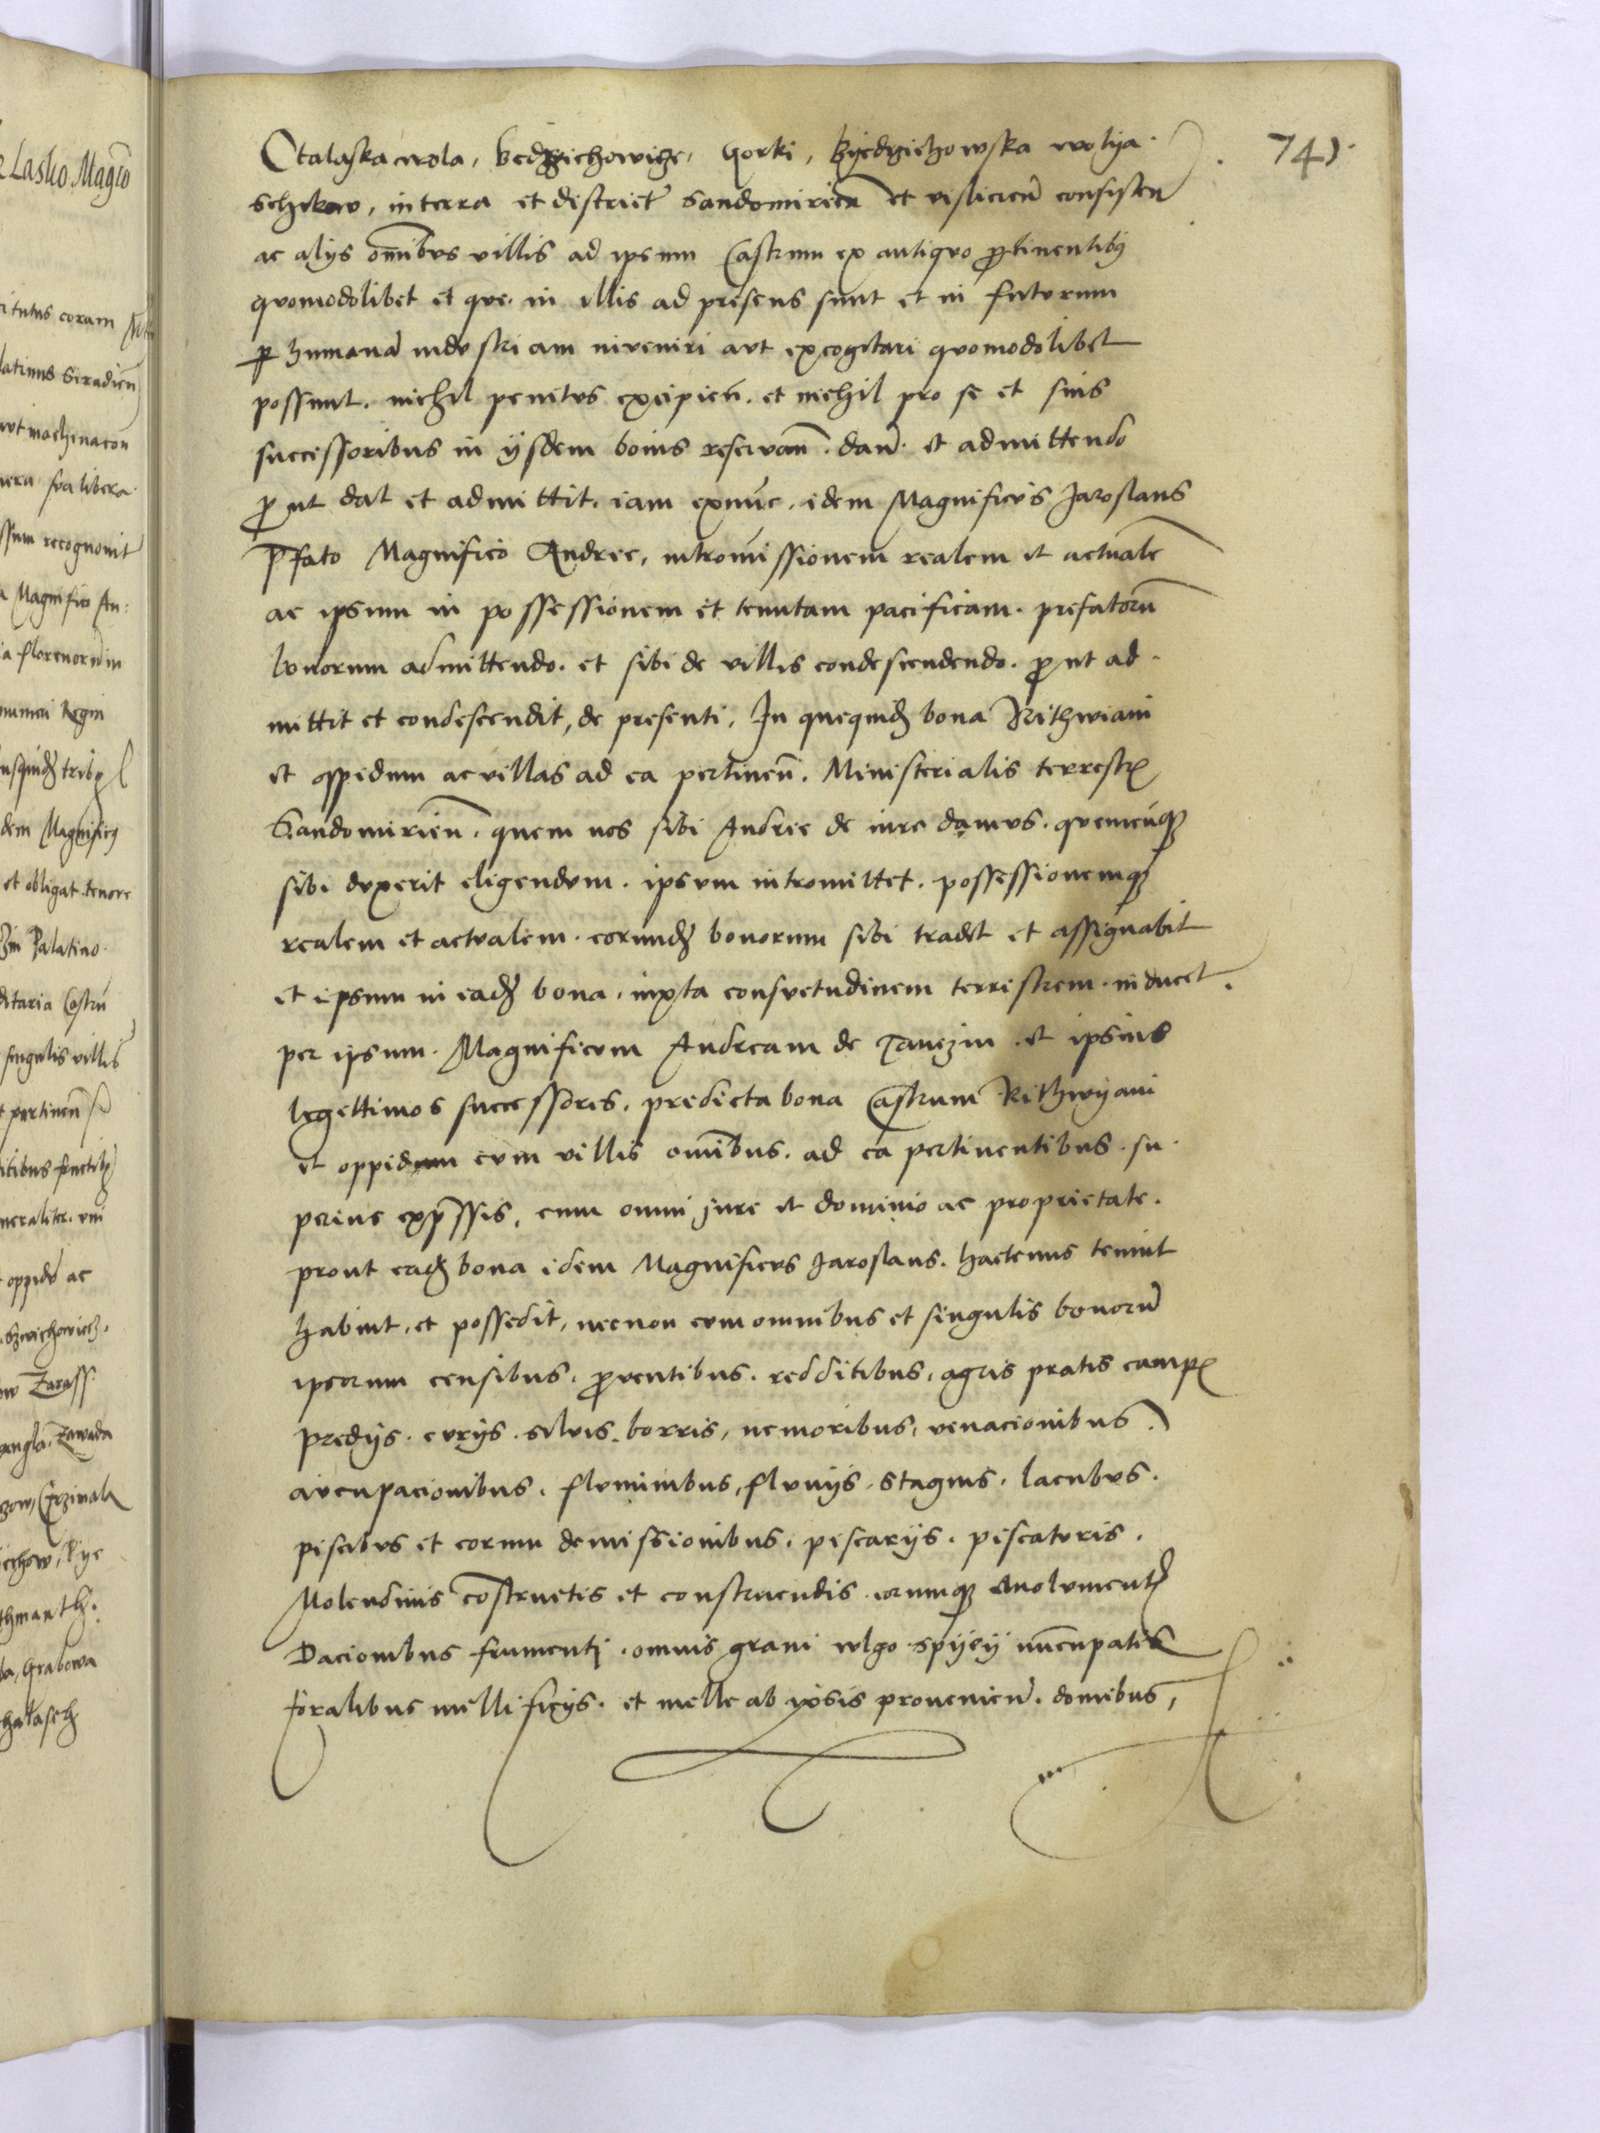 741.
Ctalaska wola, Bedzichowicze, Gorki, Byedrzichowska wolya
Schekow, in terra et district Sandomirien et vislicien consisten
ac alijs omnibus villis ad ipsum Castrum ex antiquo ptinentibus
quomodolibet et que in illis ad presens sunt et in futurum
p humanam industriam inveniri aut excogitari quomodolibet
possunt. nichil penitus excipien. et nichil pro se et suis
successoribus in ijsdem bonis reservan. dan. et admittendo
put dat et admittit. iam exnunc. idem Magnificus Jaroslaus
Pfato Magnifico Andree, intromissionem realem et actualem
ac ipsum in possessionem et tenutam pacificam. prefatorum
bonorum admittendo. et sibi de villis condescendendo. put ad
mittit et condescendit, de presenti. In quequid bona Rithwiani
et oppidum ac villas ad ea pertinen. Ministerialis terrestris
Sandomirien. quem nos sibi Andree de iure damus. quemcunque
sibi duxerit eligendum. ipsum intromittet. possessionemque
realem et actualem. eorund bonorum sibi tradet et assignabit
et ipsum in ead bona. iuxta consuetudinem terrestrem. inducet.
per ipsum. Magnificum Andream de Tanczin. et ipsius
legettimos successores. predicta bona Castrum Rithwyani
et oppidum cum villis omnibus. ad ea pertinentibus. su
perius expssis, cum omni jure et dominio ac proprietate.
prout ead bona idem Magnificus Jaroslaus. hactenus tenuit
habuit, et possedit, necnon cum omnibus et singulis bonorum
ipsorum censibus. pventibus. redditibus, agris pratis campis
predijs. curijs. siluis. borris, nemoribus, venacionibus
aucupacionibus. fluminibus, fluuijs. stagnis. lacubus.
piscibus et eorum demissionibus. piscarijs. piscaturis.
Molendinis constructis et construendis. eorumque emolumentis
Dacionibus frumenti. omnis grani wlgo spijzy nuncupatis
foralibus mellificijs. et melle ab ipsis provenien. domibus,
Lasko Magco
itutus coram
latinus Siradien
aut machinacon
sua libera
ssum recognouit
Magnifico An
florenorum in
numeri Regni
dem Magnificus
et obligat. tenore
Palatino
ditaria Castrum
singulis villis
pertinen
neraliter
oppido ac
Zarass
Zawada
Grabowa